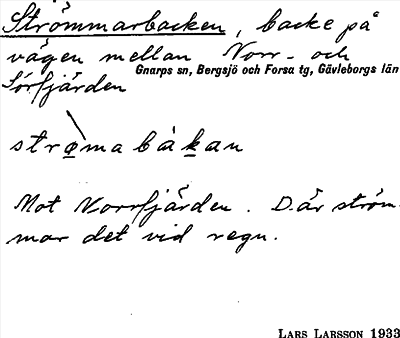 Strömmarbacken, backe på
vägen mellan Norr- och
Gnarps sn, Bergsjö och Forsa tg, Gävleborgs län
Sörfjärden
strømabàkan
Mot Norrfjärden. Där ström-
mar det vid regn.
LARS LARSSON 1933